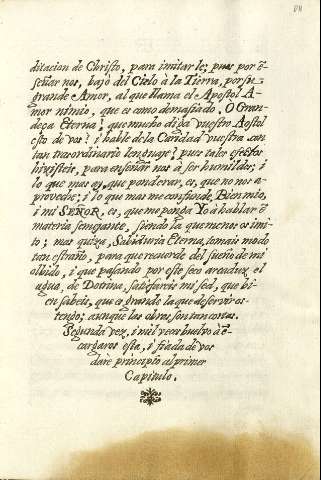 ditacion de Christo, para imitarle; pues por ẽ-
señar nos, bajò del Cielo à la Tierra, por su
grande Amor, al que llama el Apostol A-
mor nimio, que es como demasiado. O Gran-
deça Eterna! que mucho diga vuestro Apostol
esto de vos; i hable de la Caridad vuestra con
tan trasordinario lenguaje; pues tales efectos
hizisteis, para enseñar nos à ser humildes; i
lo que mas ay que ponderar, es, que no nos a-
proveche; i lo que mas me confunde, Bien mio,
i mi SEÑOR, es, que me ponga Yo à hablar ẽ
materia semejante, siendo la que menos os imi-
to; mas quiza, Sabiduria Eterna, tomais modo
tan estraño, para que recuerde del sueño de mi
olbido, i que pasando por este seco arcaduz el
agua, de Dotrina, satisfareis mi sed, que bi-
en sabeis, que es grande la que de serviros
tengo; aunque las obras son tan cortas.
Segunda vez, i mil veces buelvo à ẽ-
cargaros esta, i fiada de vos
darè principio al primer
Capitulo.